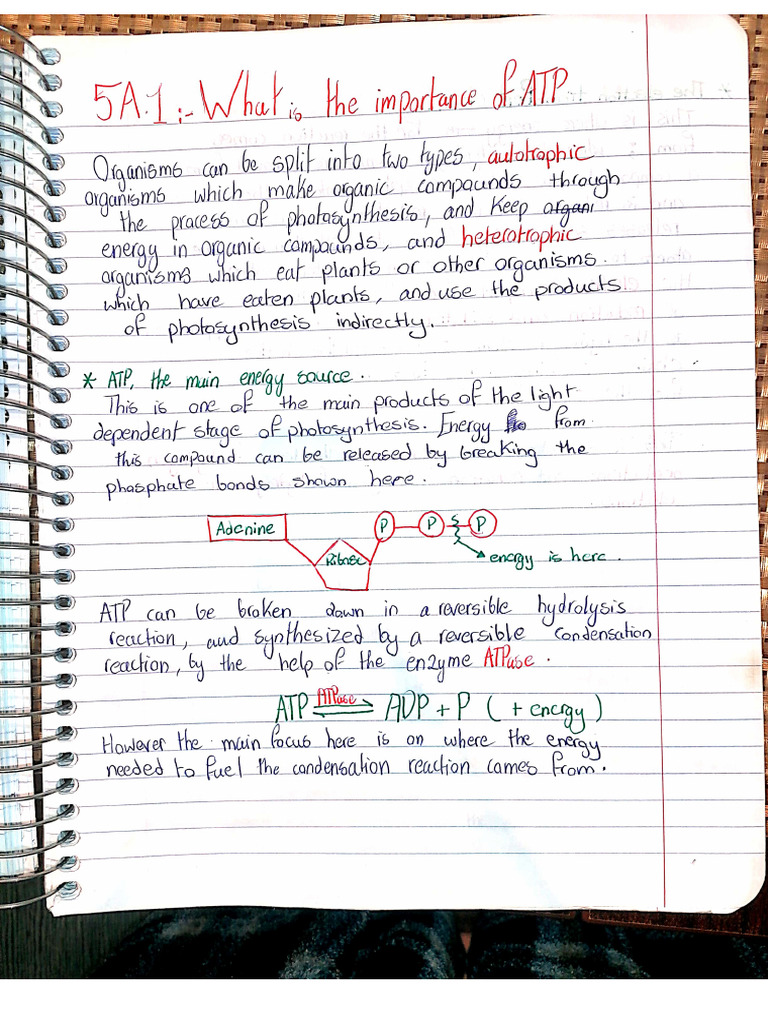 5A.1:- What is the importance of ATP
Organisms can be split into two types, autotrophic
organisms which make organic compounds through
the process of photosynthesis, and keep organi
energy in organic compounds, and heterotrophic
organisms which eat plants or other organisms.
which have eaten plants, and use the products
of photosynthesis indirectly.
* ATP, the main energy source.
This is one of the main products of the light
dependent stage of photosynthesis. Energy from
this compound can be released by breaking the
phosphate bonds shown here.
Adenine P P P
Ribose energy is here.
ATP can be broken down in a reversible hydrolysis
reaction, and synthesized by a reversible condensation
reaction, by the help of the enzyme ATPase.
ATPase
ATP ⇌ ADP + P (+ energy)
However the main focus here is on where the energy
needed to fuel the condensation reaction comes from.